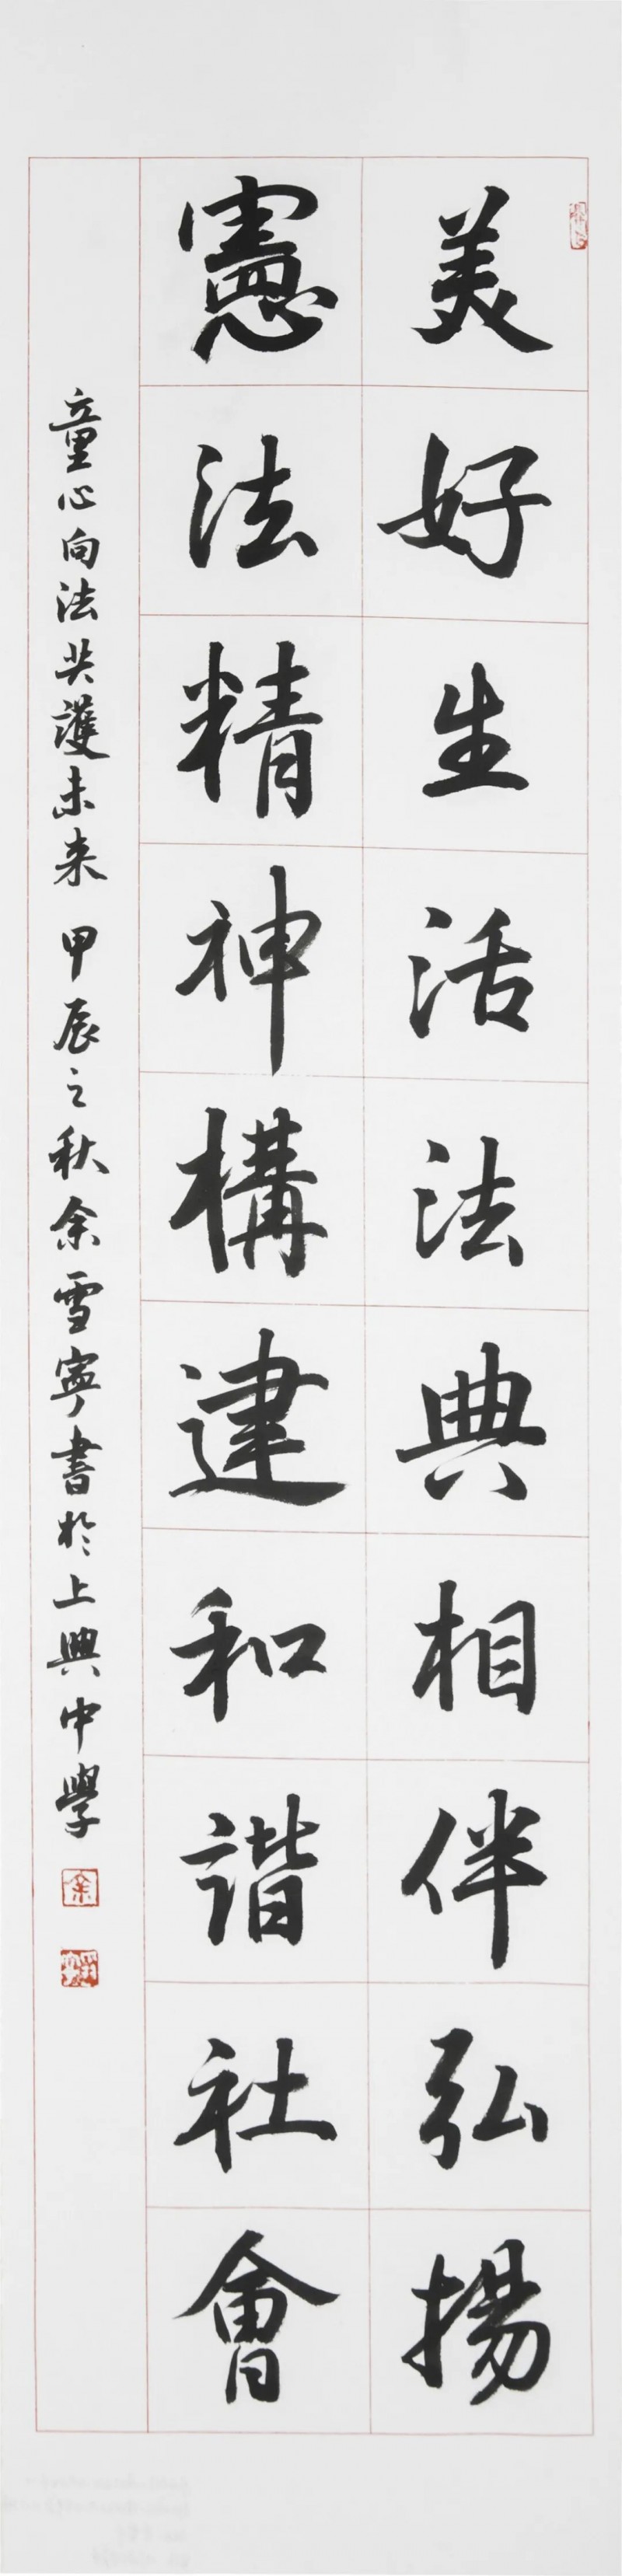 美好生活法典相伴弘揚
憲法精神構建和諧社會
童心向法共護未来 甲辰之秋余雪寧書於上興中學
余